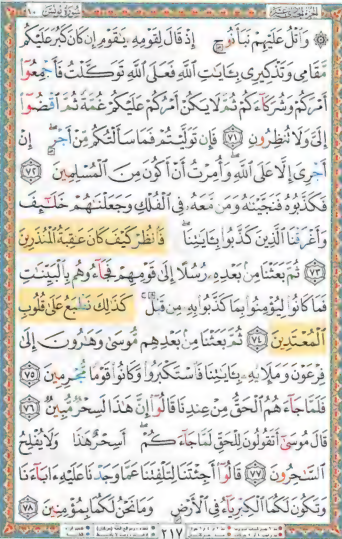 سُورَةُ يُونُسَ ١٠
۞ وَاتْلُ عَلَيْهِمْ نَبَأَ نُوحٍ إِذْ قَالَ لِقَوْمِهِ يَٰقَوْمِ إِن كَانَ كَبُرَ عَلَيْكُم
مَّقَامِي وَتَذْكِيرِي بِـَٔايَٰتِ اللَّهِ فَعَلَى اللَّهِ تَوَكَّلْتُ فَأَجْمِعُوٓا
أَمْرَكُمْ وَشُرَكَآءَكُمْ ثُمَّ لَا يَكُنْ أَمْرُكُمْ عَلَيْكُمْ غُمَّةً ثُمَّ اقْضُوٓا
إِلَيَّ وَلَا تُنظِرُونِ ٧١ فَإِن تَوَلَّيْتُمْ فَمَا سَأَلْتُكُم مِّنْ أَجْرٍ إِنْ
أَجْرِيَ إِلَّا عَلَى اللَّهِ وَأُمِرْتُ أَنْ أَكُونَ مِنَ الْمُسْلِمِينَ ٧٢
فَكَذَّبُوهُ فَنَجَّيْنَٰهُ وَمَن مَّعَهُ فِي الْفُلْكِ وَجَعَلْنَٰهُمْ خَلَٰٓئِفَ
وَأَغْرَقْنَا الَّذِينَ كَذَّبُوا بِـَٔايَٰتِنَا فَانظُرْ كَيْفَ كَانَ عَٰقِبَةُ الْمُنذَرِينَ
٧٣ ثُمَّ بَعَثْنَا مِنۢ بَعْدِهِ رُسُلًا إِلَىٰ قَوْمِهِمْ فَجَآءُوهُم بِالْبَيِّنَٰتِ
فَمَا كَانُوا لِيُؤْمِنُوا بِمَا كَذَّبُوا بِهِ مِن قَبْلُ كَذَٰلِكَ نَطْبَعُ عَلَىٰ قُلُوبِ
الْمُعْتَدِينَ ٧٤ ثُمَّ بَعَثْنَا مِنۢ بَعْدِهِم مُّوسَىٰ وَهَٰرُونَ إِلَىٰ
فِرْعَوْنَ وَمَلَإِيْهِ بِـَٔايَٰتِنَا فَاسْتَكْبَرُوا وَكَانُوا قَوْمًا مُّجْرِمِينَ ٧٥
فَلَمَّا جَآءَهُمُ الْحَقُّ مِنْ عِندِنَا قَالُوٓا إِنَّ هَٰذَا لَسِحْرٌ مُّبِينٌ ٧٦
قَالَ مُوسَىٰٓ أَتَقُولُونَ لِلْحَقِّ لَمَّا جَآءَكُمْ أَسِحْرٌ هَٰذَا وَلَا يُفْلِحُ
السَّٰحِرُونَ ٧٧ قَالُوٓا أَجِئْتَنَا لِتَلْفِتَنَا عَمَّا وَجَدْنَا عَلَيْهِ ءَابَآءَنَا
وَتَكُونَ لَكُمَا الْكِبْرِيَآءُ فِي الْأَرْضِ وَمَا نَحْنُ لَكُمَا بِمُؤْمِنِينَ ٧٨
٢١٧